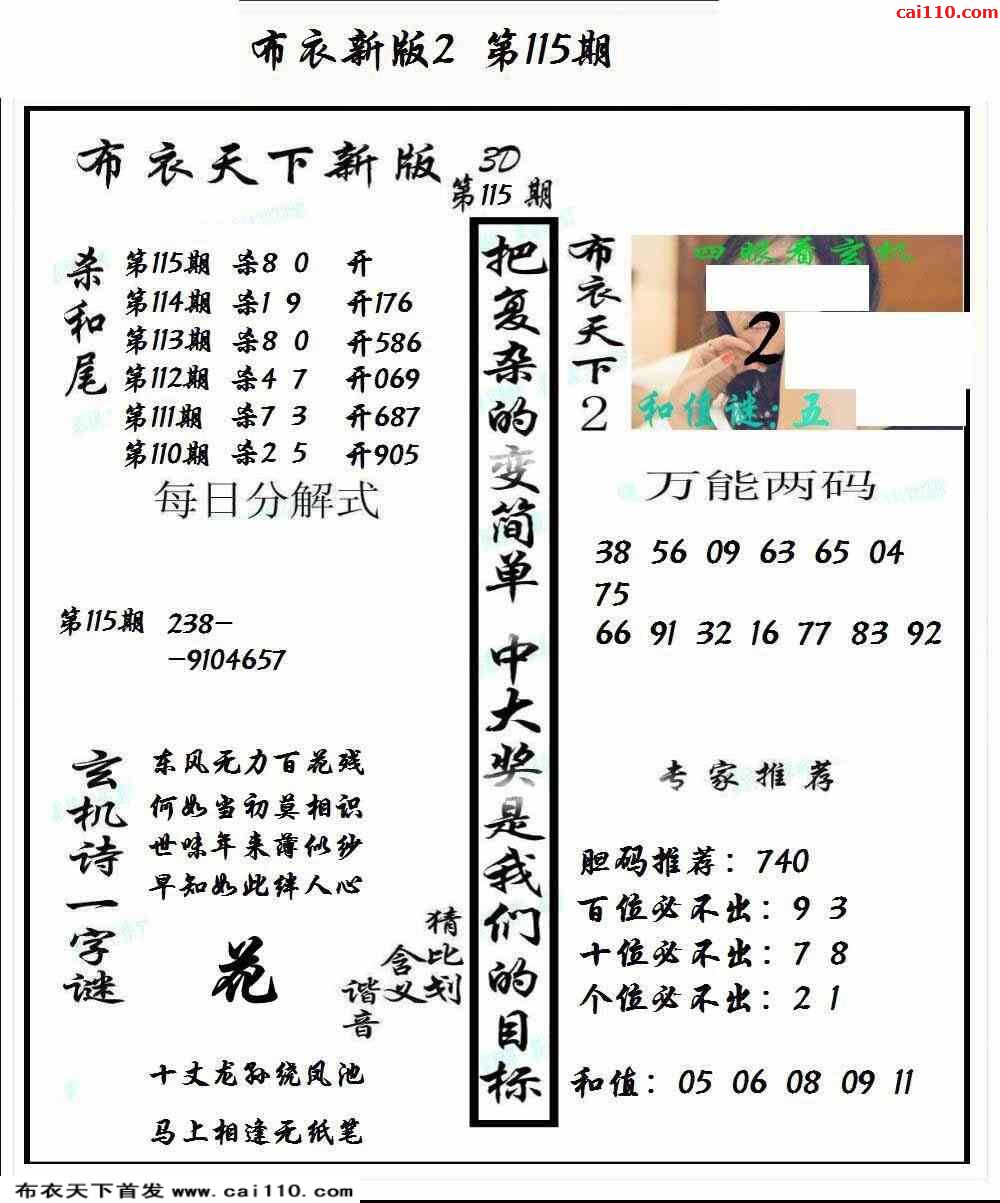 cai110.com
布衣新版2 第115期
布衣天下新版
3D
第115期
杀和尾
第115期 杀8 0 开
第114期 杀1 9 开176
第113期 杀8 0 开586
第112期 杀4 7 开069
第111期 杀7 3 开687
第110期 杀2 5 开905
每日分解式
第115期 238-
-9104657
玄机诗一字谜
东风无力百花残
何如当初莫相识
世味年来薄似纱
早知如此绊人心
花
猜比划
含义
谐音
十丈龙孙绕凤池
马上相逢无纸笔
把复杂的变简单 中大奖是我们的目标
布衣天下2
四眼看玄机
2
和值谜:五
万能两码
38 56 09 63 65 04
75
66 91 32 16 77 83 92
专家推荐
胆码推荐：740
百位必不出：9 3
十位必不出：7 8
个位必不出：2 1
和值：05 06 08 09 11
布衣天下首发 www.cai110.com